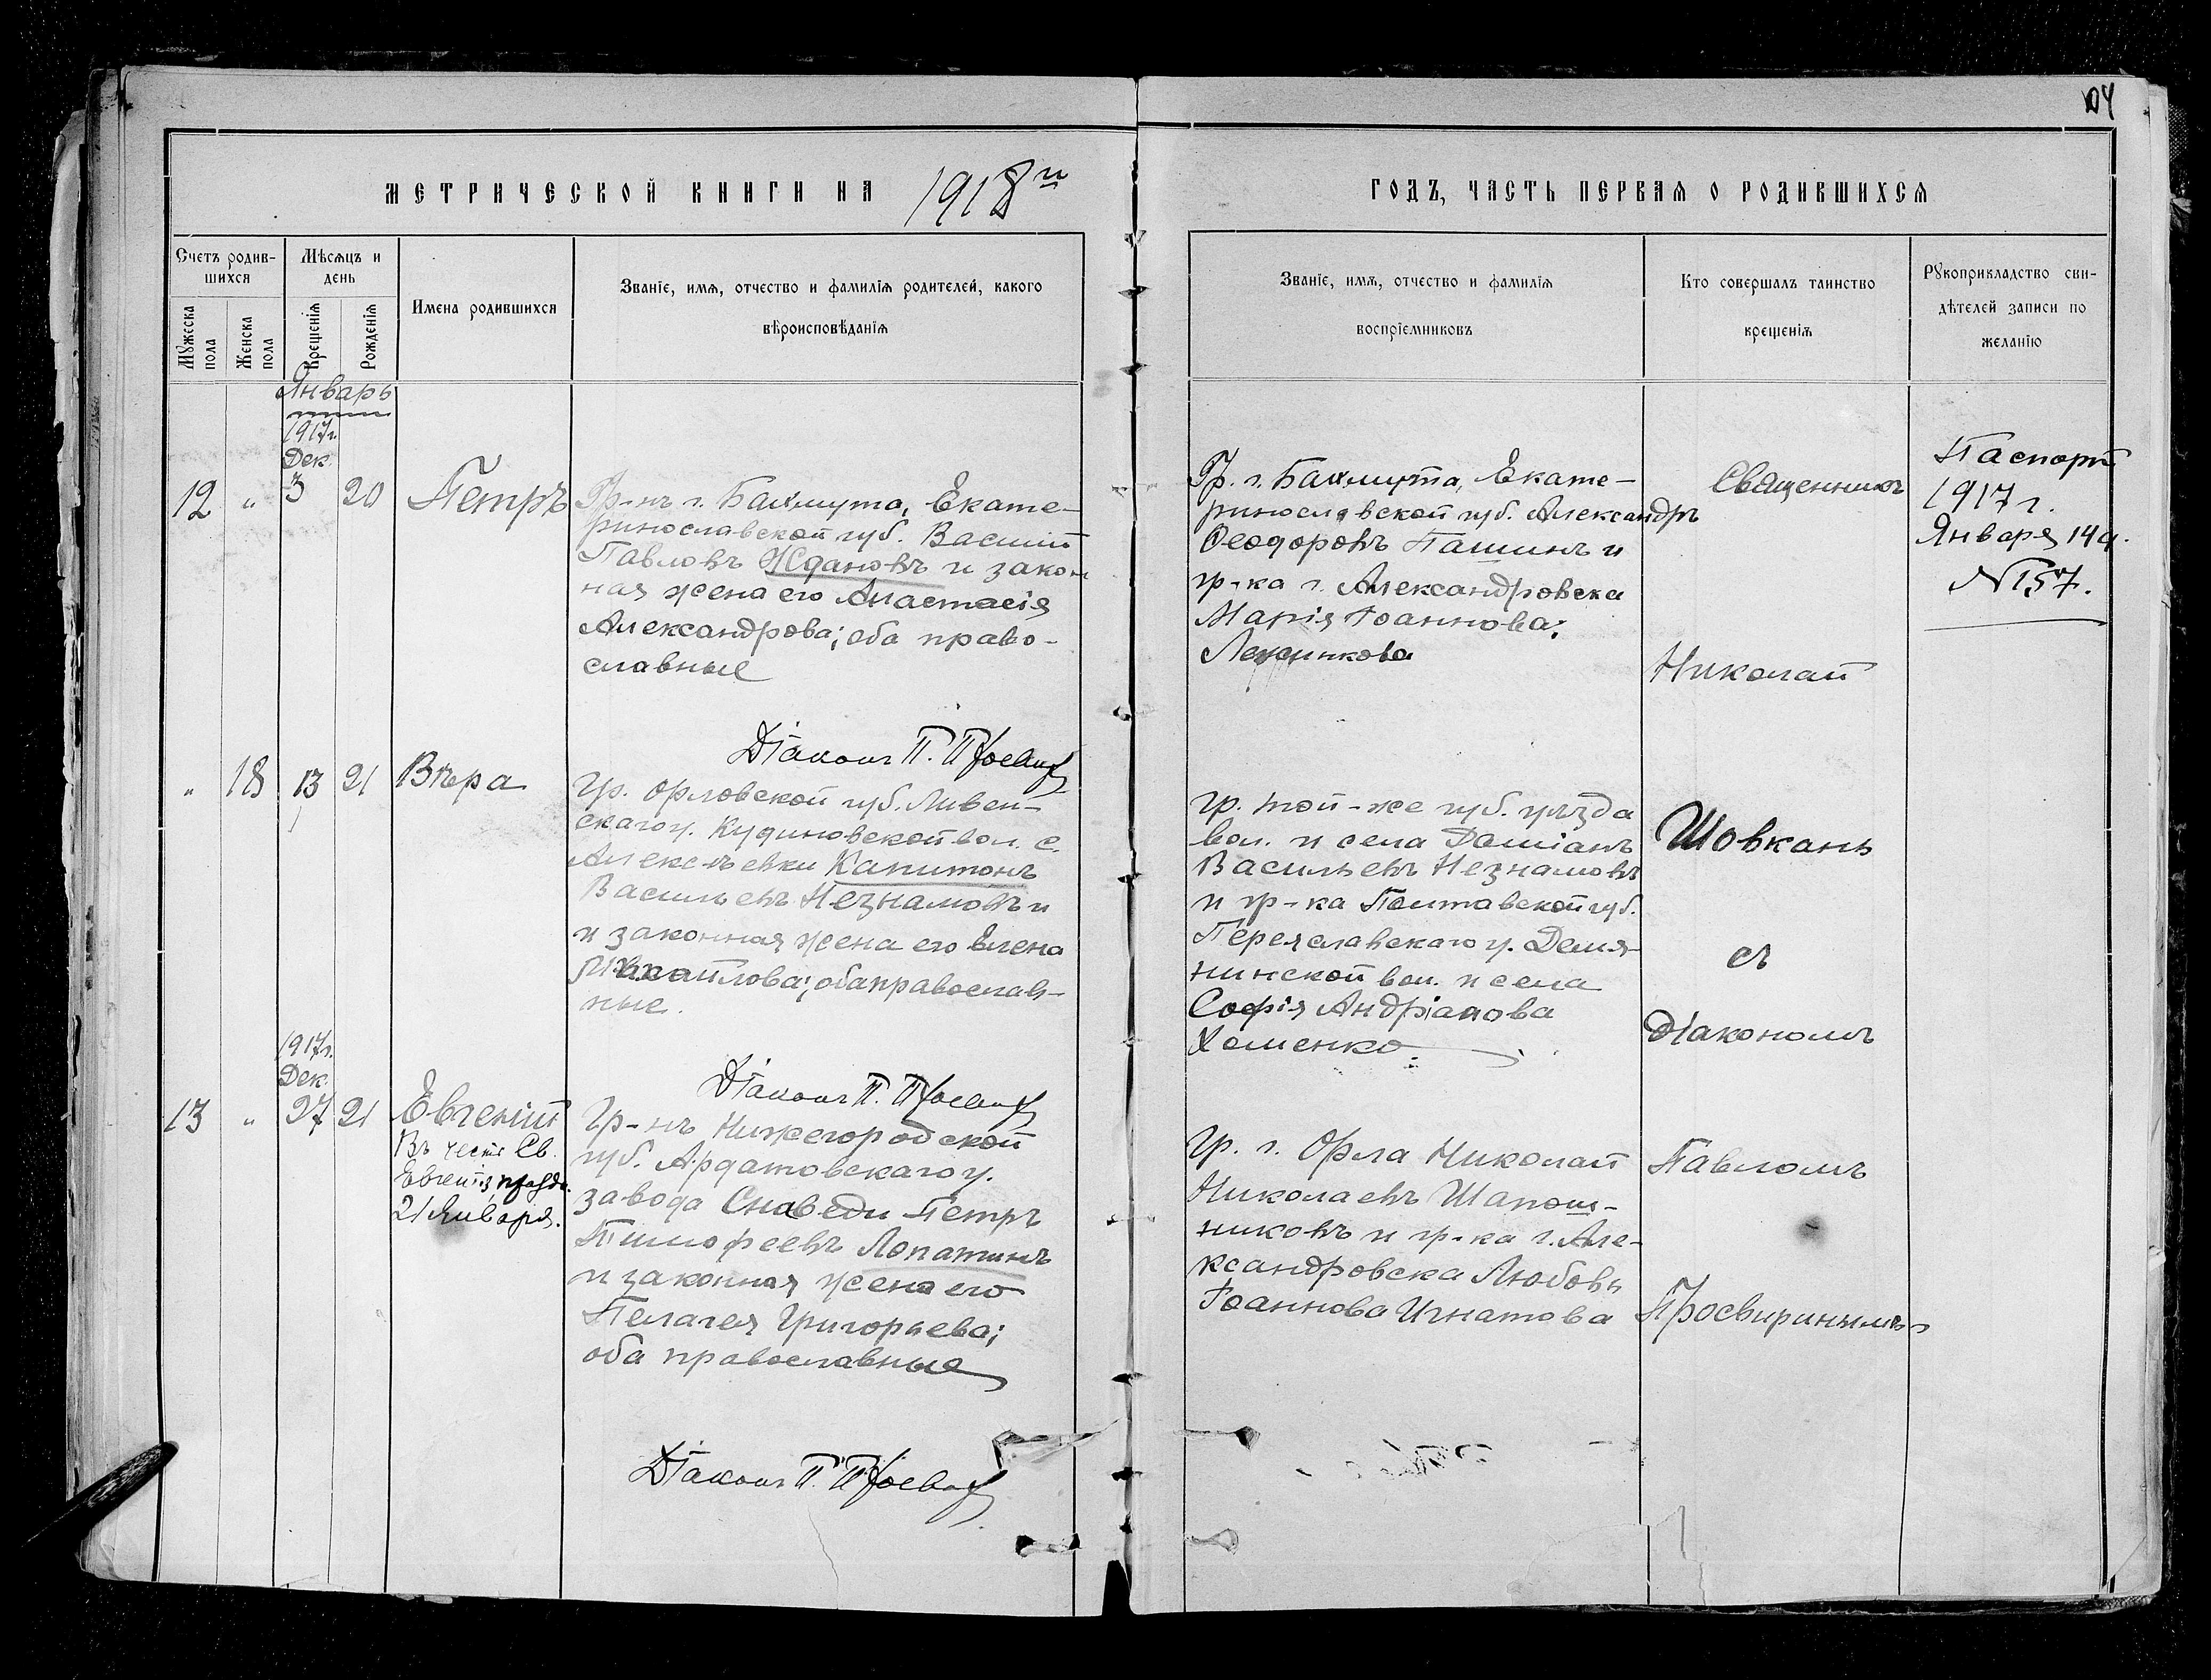 104
МЕТРИЧЕСКОЙ КНИГИ НА 1918й
ГОДЪ, ЧАСТЬ ПЕРВАЯ О РОДИВШИХСЯ
Счетъ родив-
шихся
Мужеска
пола
Женска
пола
Мѣсяцъ и
день
Крещенія
Рожденія
Имена родившихся
Званіе, имя, отчество и фамилія родителей, какого
вѣроисповѣданія
Званіе, имя, отчество и фамилія
воспріемниковъ
Кто совершалъ таинство
крещенія
Рукоприкладство сви-
дѣтелей записи по
желанію
Январь
1917г.
Дек.
12 " 3 20 Петръ
Гр-нъ г. Бахмута, Екате-
ринославской губ. Василій
Павловъ Ждановъ и закон
ная жена его Анастасія
Александрова; оба право-
славные
Діаконъ П. Просвир
Гр. г. Бахмута, Екате-
ринославской губ. Александръ
Ѳеодоровъ Пашинъ и
гр-ка г. Александровска
Марія Іоаннова
Священникъ
Николай
Паспортъ
1917 г.
Января 14 д.
N 157.
" 18 13 21 Вѣра
Гр. Орловской губ. Ливен-
скаго у. Кудиновской вол. с.
Алексѣевки Капитонъ
Васильевъ Незнамовъ и
и законная жена его Елена
Михайлова; оба православ-
ные.
Діаконъ П. Просвир
гр. той-же губ. уѣзда
вол. и села Даміанъ
Васильевъ Незнамовъ
и гр-ка Полтавской губ.
Переяславскаго у. Демя-
нинской вол. и села
Софія Андріанова
Хоменко.
Шовкань
съ
Діакономъ
1917г.
Дек.
13 " 27 21 Евгеній
Въ честь Св.
Евгенія празд.
21 Января.
Гр-нъ Нижегородской
губ. Ардатовскаго у.
завода Сноведи Петръ
Тимофеевъ Лопатинъ
и законная жена его
Пелагея Григорьева;
оба православные
Діаконъ П. Просвир
Гр. г. Орла Николай
Николаевъ Шапош-
никовъ и гр-ка г. Але-
ксандровска Любовь
Іоаннова Игнатова
Павломъ
Просвиринымъ